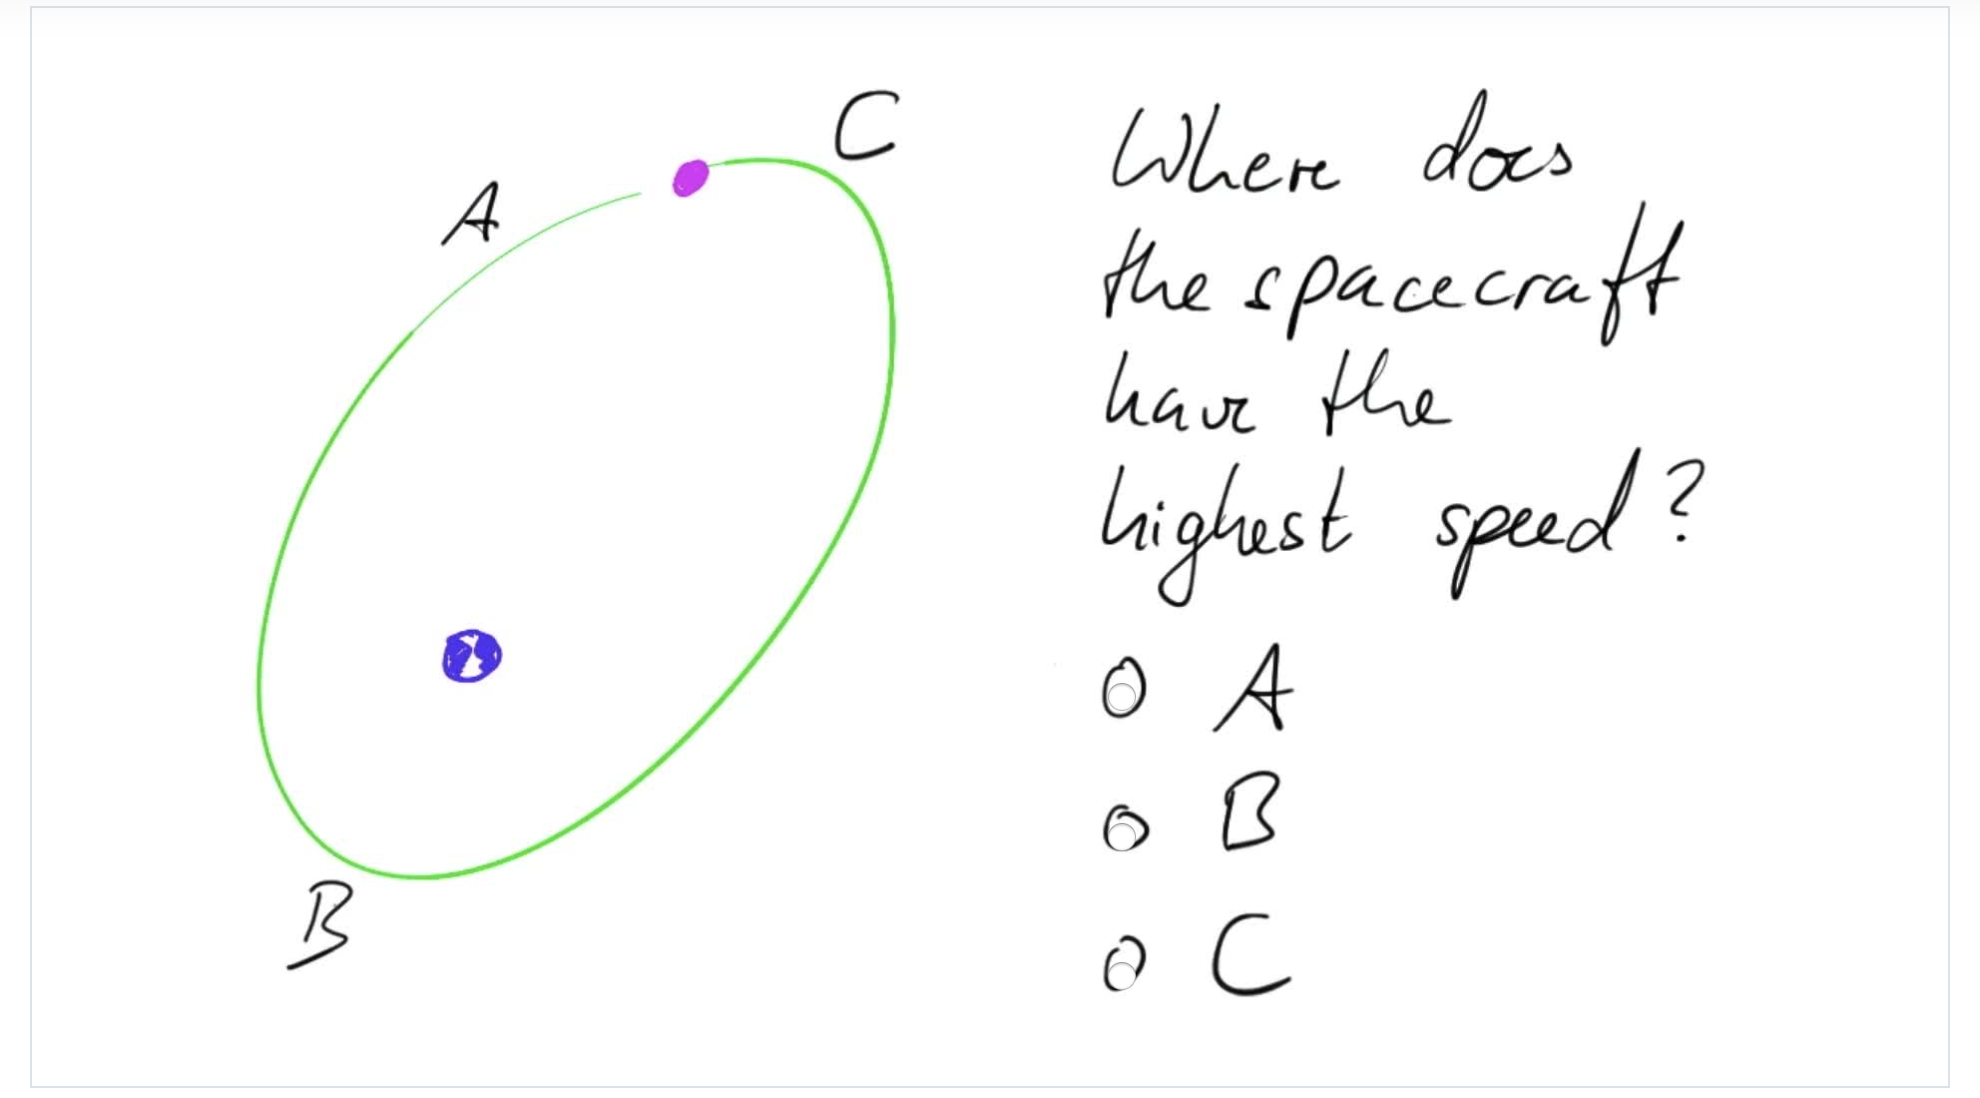 C
A
B
Where does
the spacecraft
have the
highest speed?
A
B
C